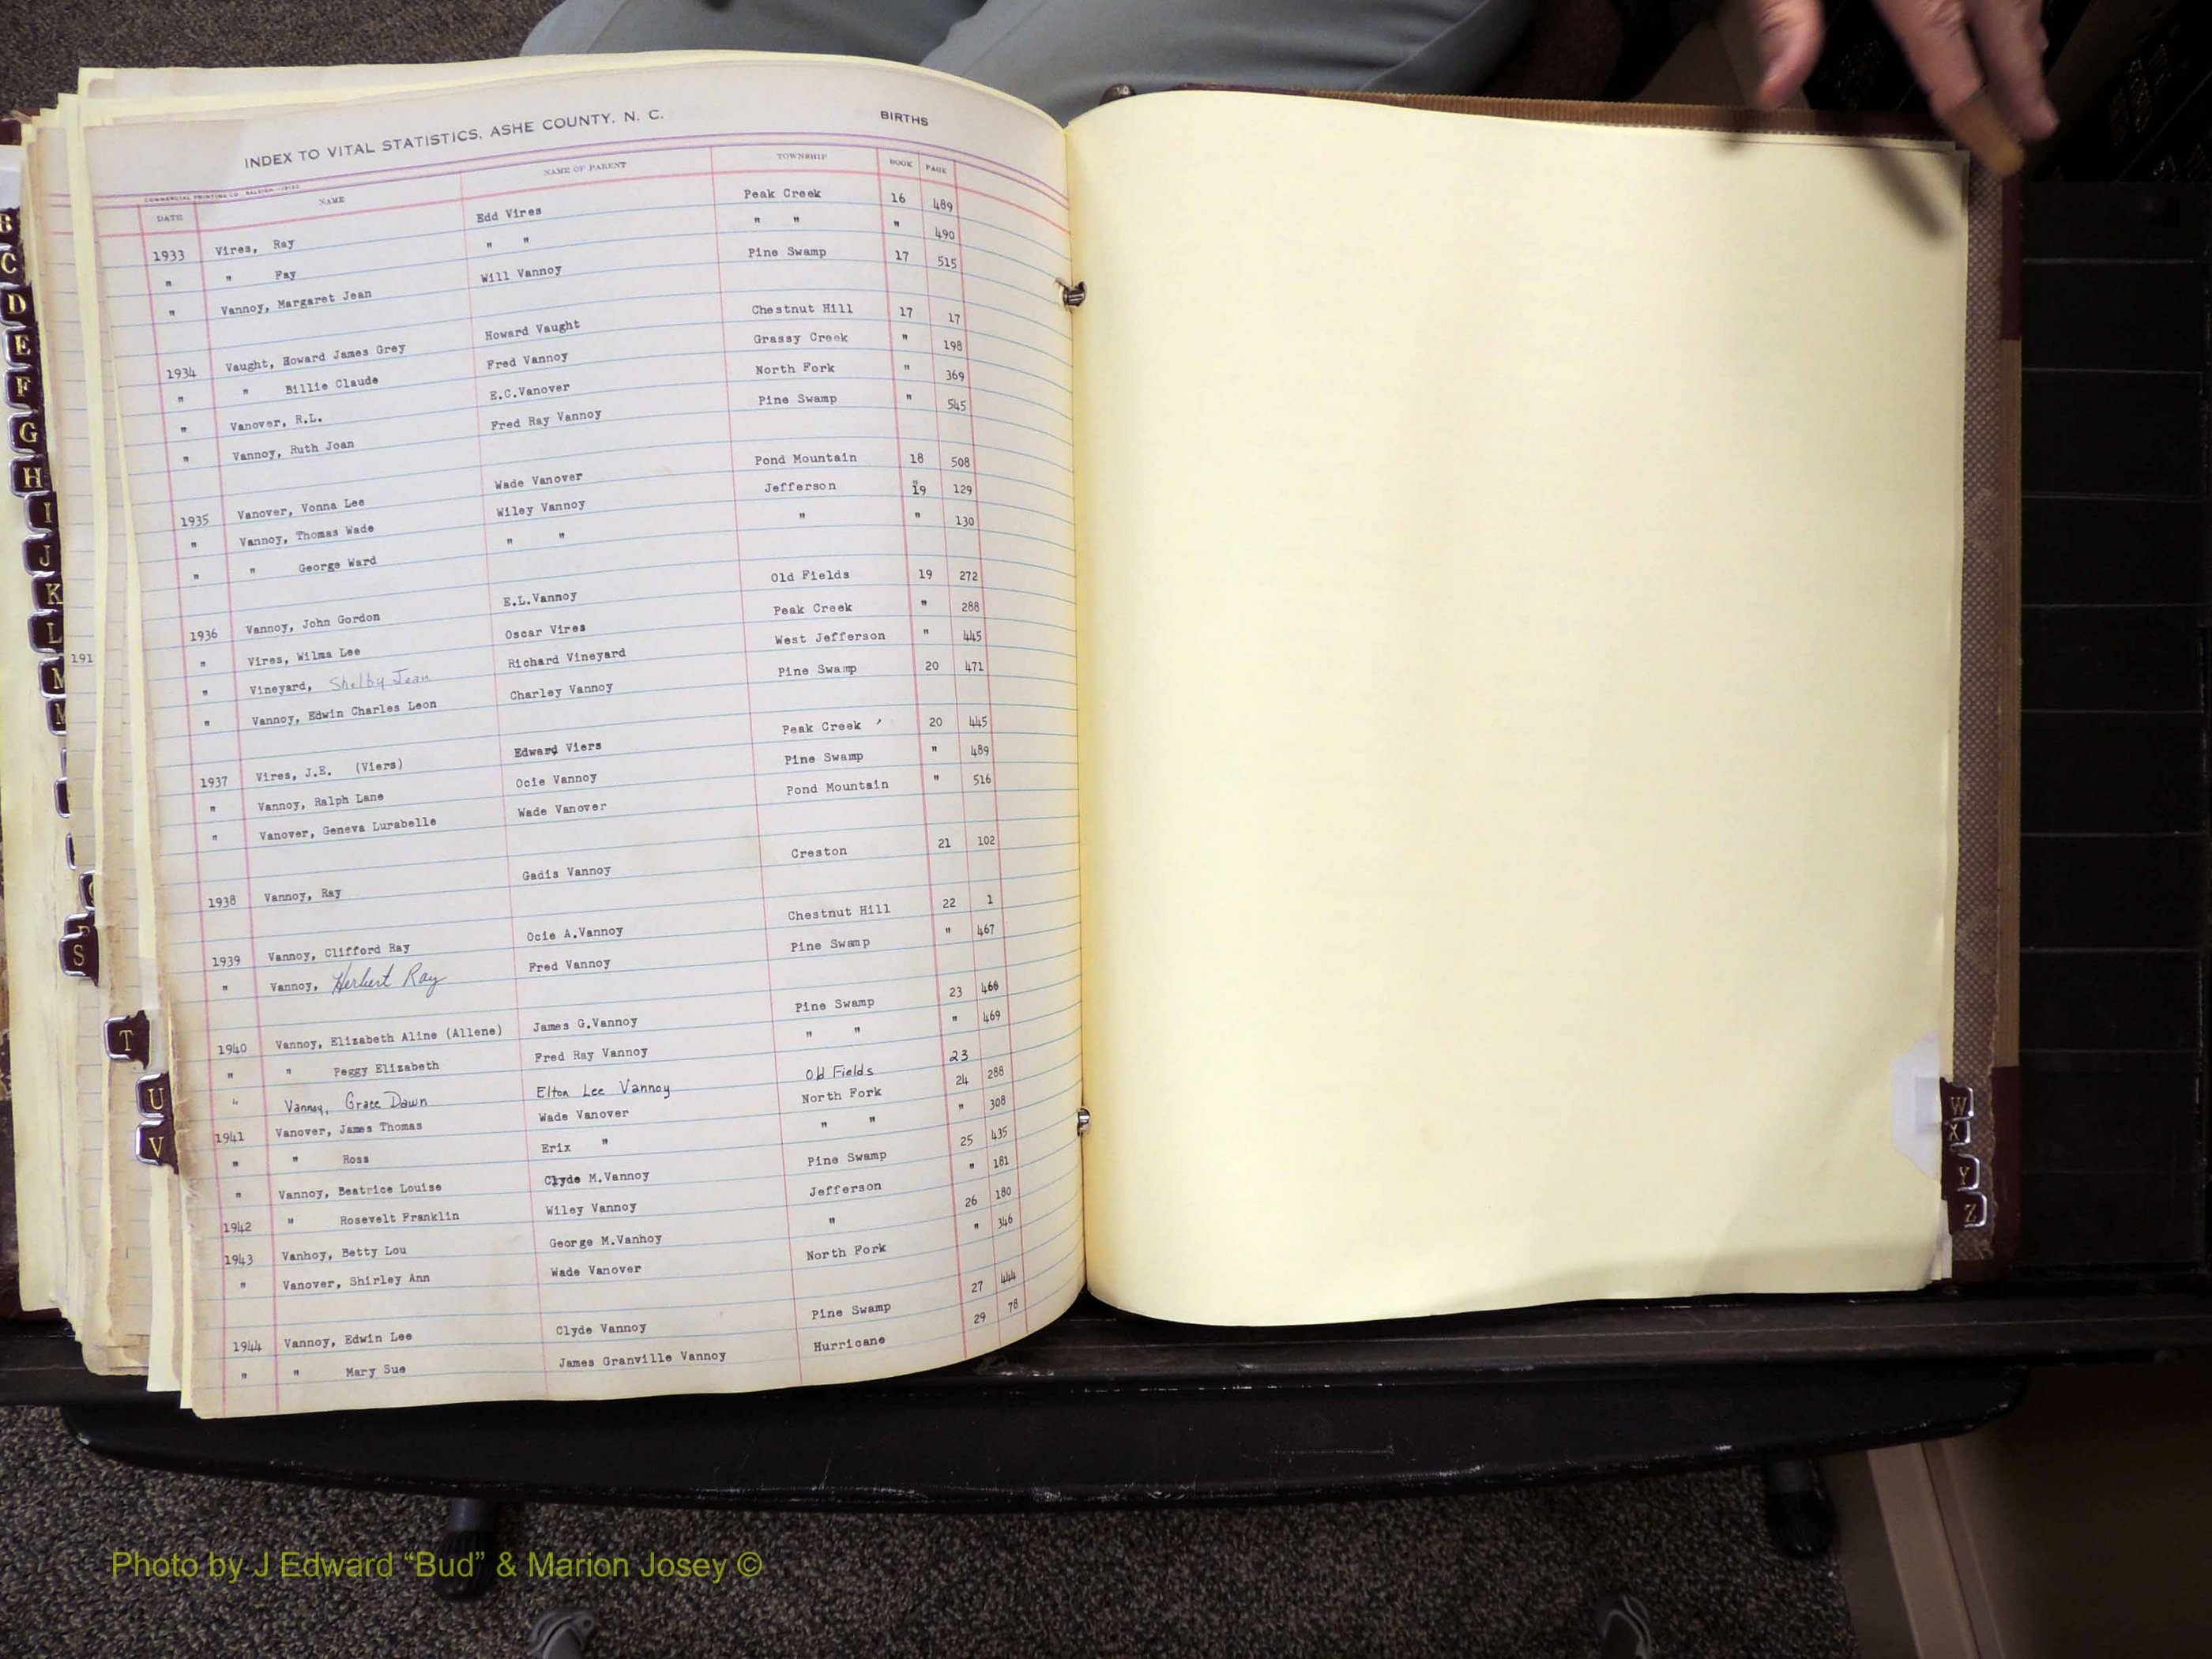 INDEX TO VITAL STATISTICS, ASHE COUNTY, N. C. BIRTHS
COMMERCIAL PRINTING CO. RALEIGH
DATE NAME NAME OF PARENT TOWNSHIP BOOK PAGE
1933 Vires, Ray Edd Vires Peak Creek 16 489
" " Fay " " " " " 490
" Vannoy, Margaret Jean Will Vannoy Pine Swamp 17 515
1934 Vaught, Howard James Grey Howard Vaught Chestnut Hill 17 17
" " Billie Claude Fred Vannoy Grassy Creek " 198
" Vanover, R.L. E.C.Vanover North Fork " 369
" Vannoy, Ruth Joan Fred Ray Vannoy Pine Swamp " 545
1935 Vanover, Vonna Lee Wade Vanover Pond Mountain 18 508
" Vannoy, Thomas Wade Wiley Vannoy Jefferson 19 129
" " George Ward " " " " 130
1936 Vannoy, John Gordon E.L.Vannoy Old Fields 19 272
" Vires, Wilma Lee Oscar Vires Peak Creek " 288
" Vineyard, Shelby Jean Richard Vineyard West Jefferson " 445
" Vannoy, Edwin Charles Leon Charley Vannoy Pine Swamp 20 471
1937 Vires, J.E. (Viers) Edward Viers Peak Creek 20 445
" Vannoy, Ralph Lane Ocie Vannoy Pine Swamp " 489
" Vanover, Geneva Lurabelle Wade Vanover Pond Mountain " 516
1938 Vannoy, Ray Gadis Vannoy Creston 21 102
1939 Vannoy, Clifford Ray Ocie A.Vannoy Chestnut Hill 22 1
" Vannoy, Herbert Ray Fred Vannoy Pine Swamp " 467
1940 Vannoy, Elizabeth Aline (Allene) James G.Vannoy Pine Swamp 23 468
" " Peggy Elizabeth Fred Ray Vannoy " " " 469
" Vannoy, Grace Dawn Elton Lee Vannoy Old Fields 23
1941 Vanover, James Thomas Wade Vanover North Fork 24 288
" " Ross Erix " " " " 308
" Vannoy, Beatrice Louise Clyde M.Vannoy Pine Swamp 25 435
1942 " Rosevelt Franklin Wiley Vannoy Jefferson " 181
1943 Vanhoy, Betty Lou George M.Vanhoy " 26 180
" Vanover, Shirley Ann Wade Vanover North Fork " 346
1944 Vannoy, Edwin Lee Clyde Vannoy Pine Swamp 27 444
" " Mary Sue James Granville Vannoy Hurricane 29 78
191
B
C
D
E
F
G
H
I
J
K
L
M
S
T
U
V
W
X
Y
Z
Photo by J Edward “Bud” & Marion Josey ©